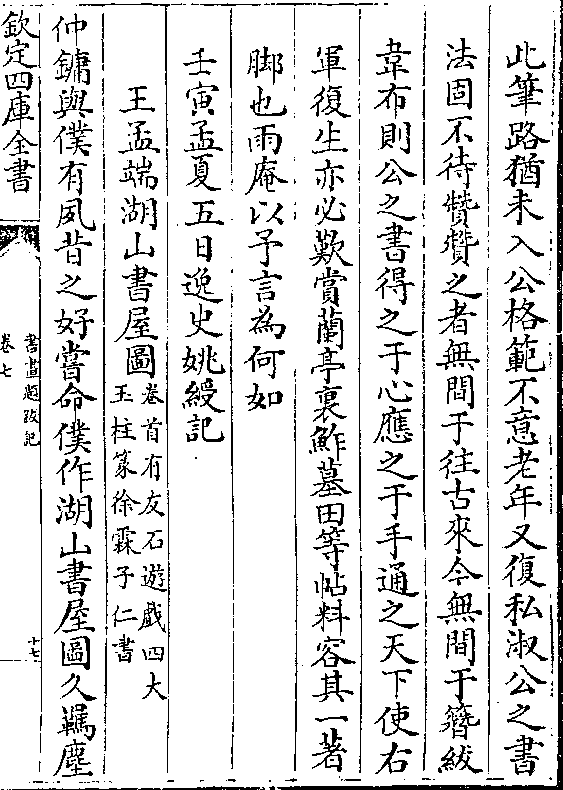 此筆路猶未入公格範不意老年又復私淑公之書
法固不待贊贊之者無間于往古來今無間于簪紱
韋布則公之書得之于心應之于手通之天下使右
軍復生亦必歎賞蘭亭裹鮓墓田等帖料容其一著
脚也雨庵以予言為何如
壬寅孟夏五日逸史姚綬記
王孟端湖山書屋圖
卷首有友石遊戲四大
玉柱篆徐霖子仁書
仲鏞與僕有夙昔之好嘗命僕作湖山書屋圖久羈塵
欽定四庫全書
書畫題跋記
卷七
十七